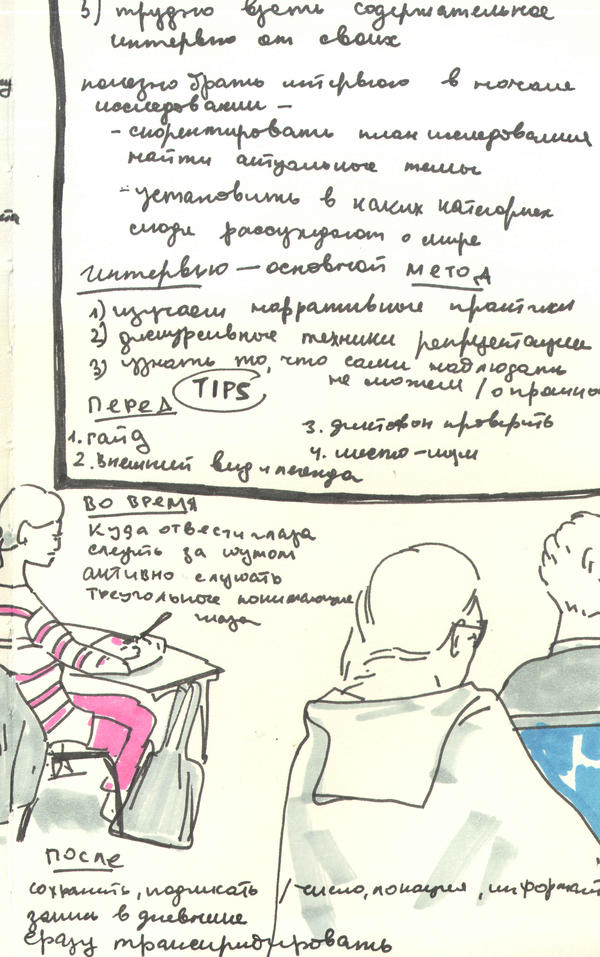 3) трудно взять содержательное
интервью от своих
полезно брать интервью в начале
исследования –
- скорректировать план исследования
найти актуальные темы
- установить в каких категориях
люди рассуждают о мире
интервью – основной метод
1) изучаем нарративные практики
2) дискурсивные техники репрезентации
3) узнать то, что сами наблюдать
не можем / о прошло
TIPS
перед
1. гайд
2. внешний вид и легенда
3. диктофон проверить
4. место – шум
во время
куда отвести глаза
следить за шумом
активно слушать
треугольное понимающие
глаза
после
сохранить, подписать / число, локация, информант
запись в дневнике
сразу транскрибировать